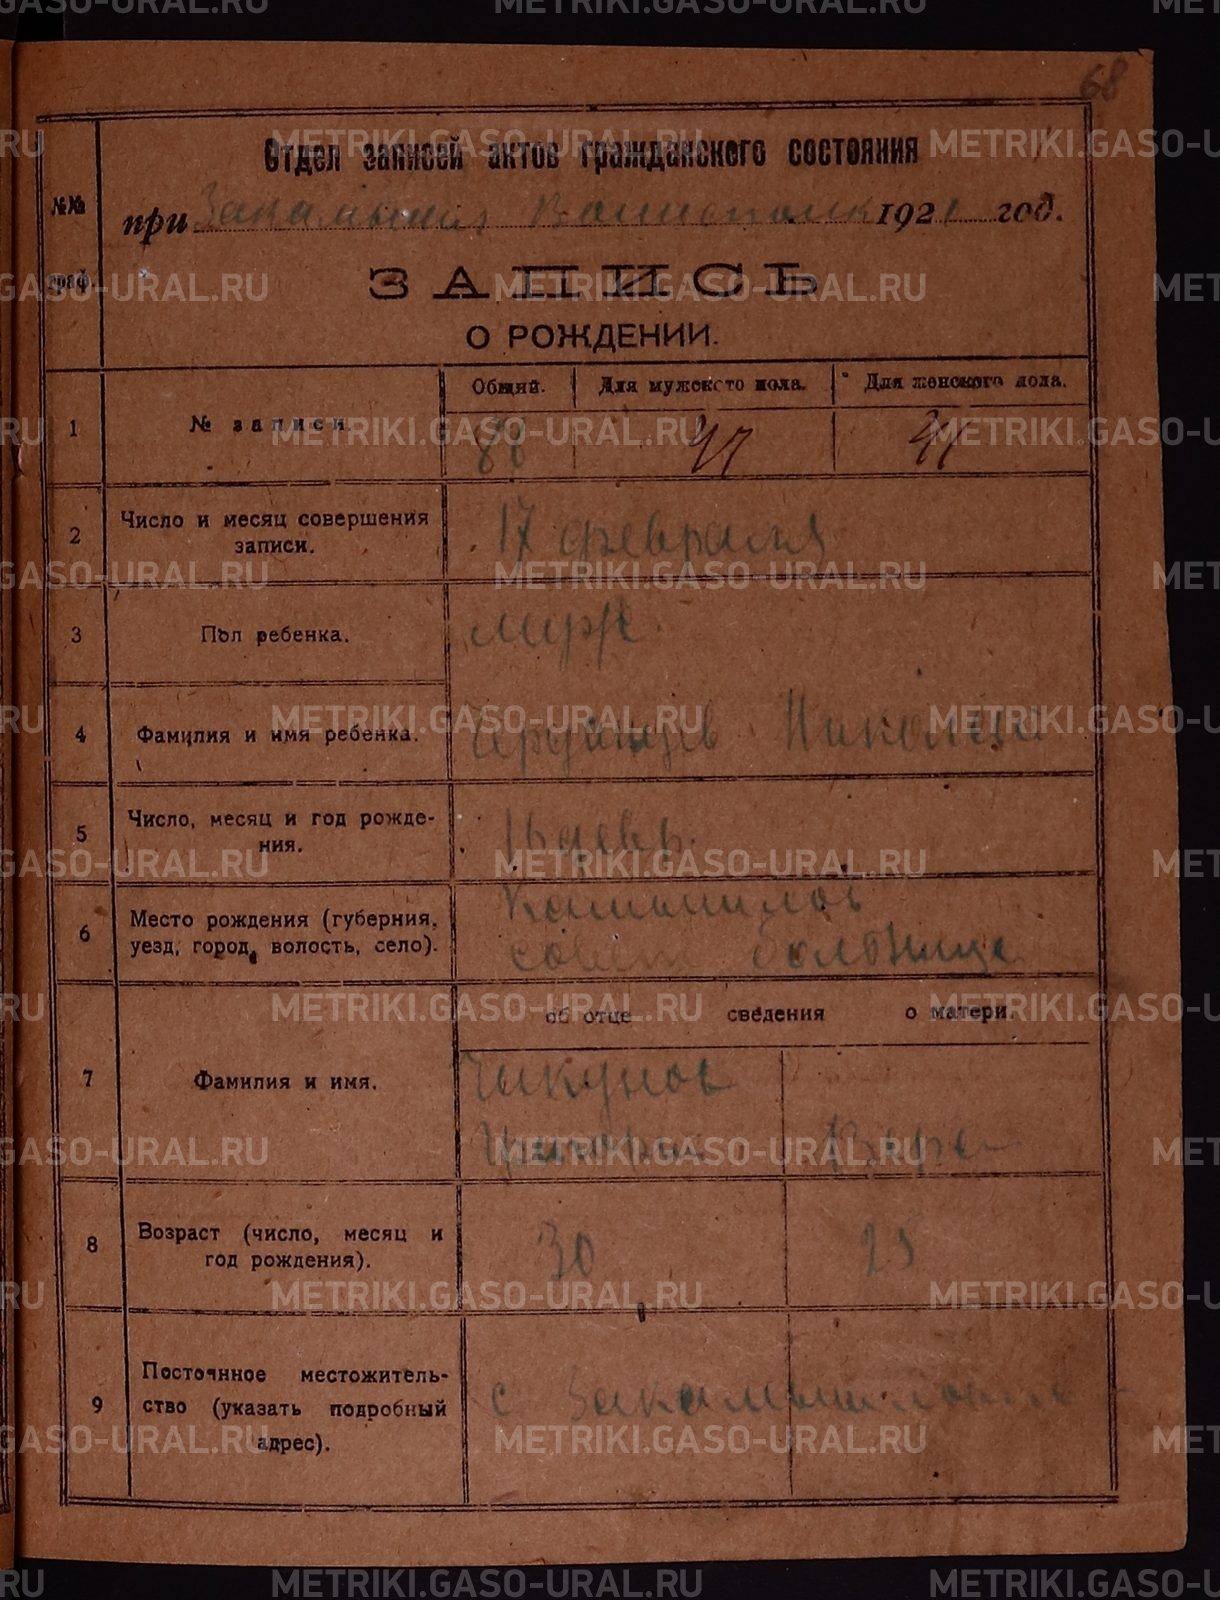 68
Отдел записей актов гражданского состояния
№№ граф.
при 1921 год.
ЗАПИСЬ
О РОЖДЕНИИ.
Общий. Для мужского пола. Для женского пола.
1 № записи. 88 47 41
2 Число и месяц совершения 17 февраля
записи.
3 Пол ребенка. муж.
4 Фамилия и имя ребенка. Николай
5 Число, месяц и год рожде-
ния.
6 Место рождения (губерния, Камышлов
уезд, город, волость, село). совет больница
об отце сведения о матери.
7 Фамилия и имя. Чикунов
Григорий Вера
8 Возраст (число, месяц и 30 25
год рождения).
9 Постоянное местожитель-
ство (указать подробный с Закамышловское
адрес).
METRIKI.GASO-URAL.RU